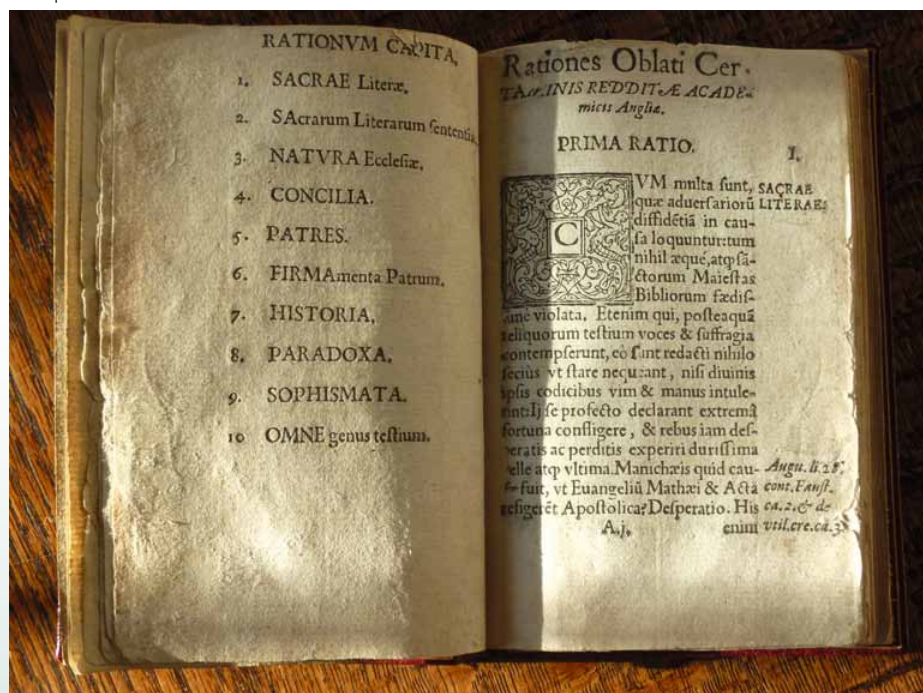 RATIONVM CAPITA.
1. SACRAE Literæ.
2. SAcrarum Literarum ſententia.
3. NATVRA Eccleſiæ.
4. CONCILIA.
5. PATRES.
6. FIRMAmenta Patrum.
7. HISTORIA.
8. PARADOXA.
9. SOPHISMATA.
10 OMNE genus teſtium.
Rationes Oblati Cer-
TAMINIS REDDITÆ ACADE-
micis Angliæ.
PRIMA RATIO.
I.
SACRAE
LITERAE.
CVM multa ſunt,
quæ aduerſariorũ
diffidẽtiã in cau-
ſa loquuntur:tum
nihil æquè,atqȝ sã-
ctorum Maieſtas
Bibliorum fædiſ-
ſimè violata. Etenim qui, poſteaquã
reliquorum teſtium voces & ſuffragia
contempſerunt, eò ſunt redacti nihilo
ſecius vt ſtare nequeant, niſi diuinis
ipſis codicibus vim & manus intule-
rint:Ij ſe profecto declarant extremã
fortuna confligere, & rebus iam deſ-
peratis ac perditis experiri duriſſima
velle atqȝ vltima. Manichæis quid cau-
ſæ fuit, vt Euangeliũ Mathæi & Acta
refigerẽt Apoſtolica? Deſperatio. His
A.j. enim
Augu. li. 28.
cont. Fauſt.
ca. 2. & de
vtil. cre. ca. 3.